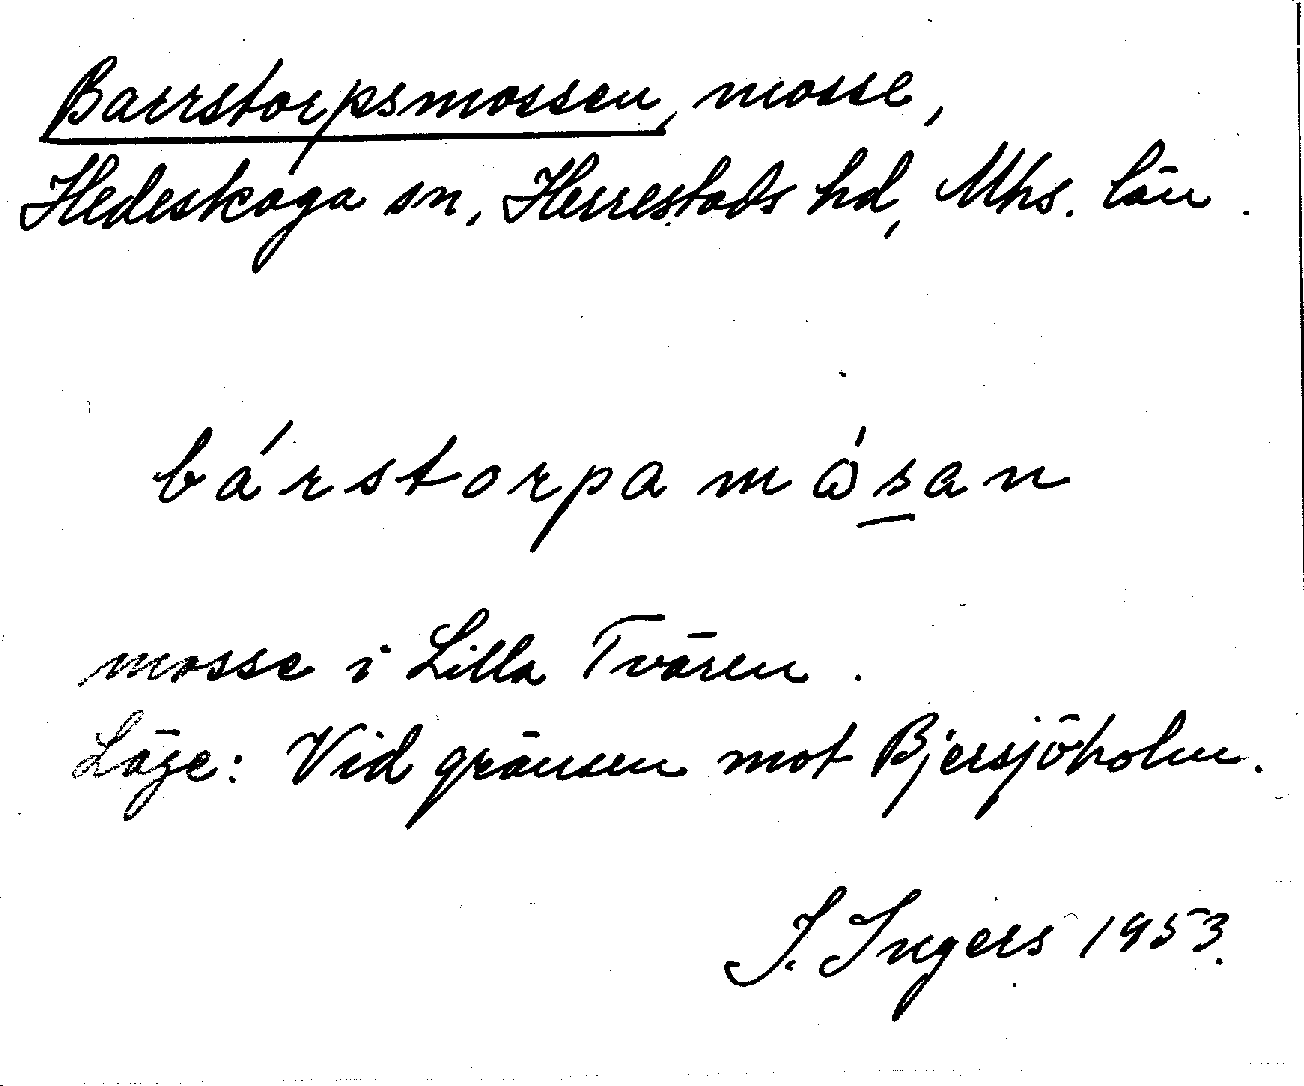 Barrstorpsmossen, mosse,
Hedeskoga sn, Herrestads hd, Mhs. län.
bárstorpamǻsan
mosse i Lilla Tvären.
Läge: Vid gränsen mot Bjersjöholm.
I. Ingers 1953.